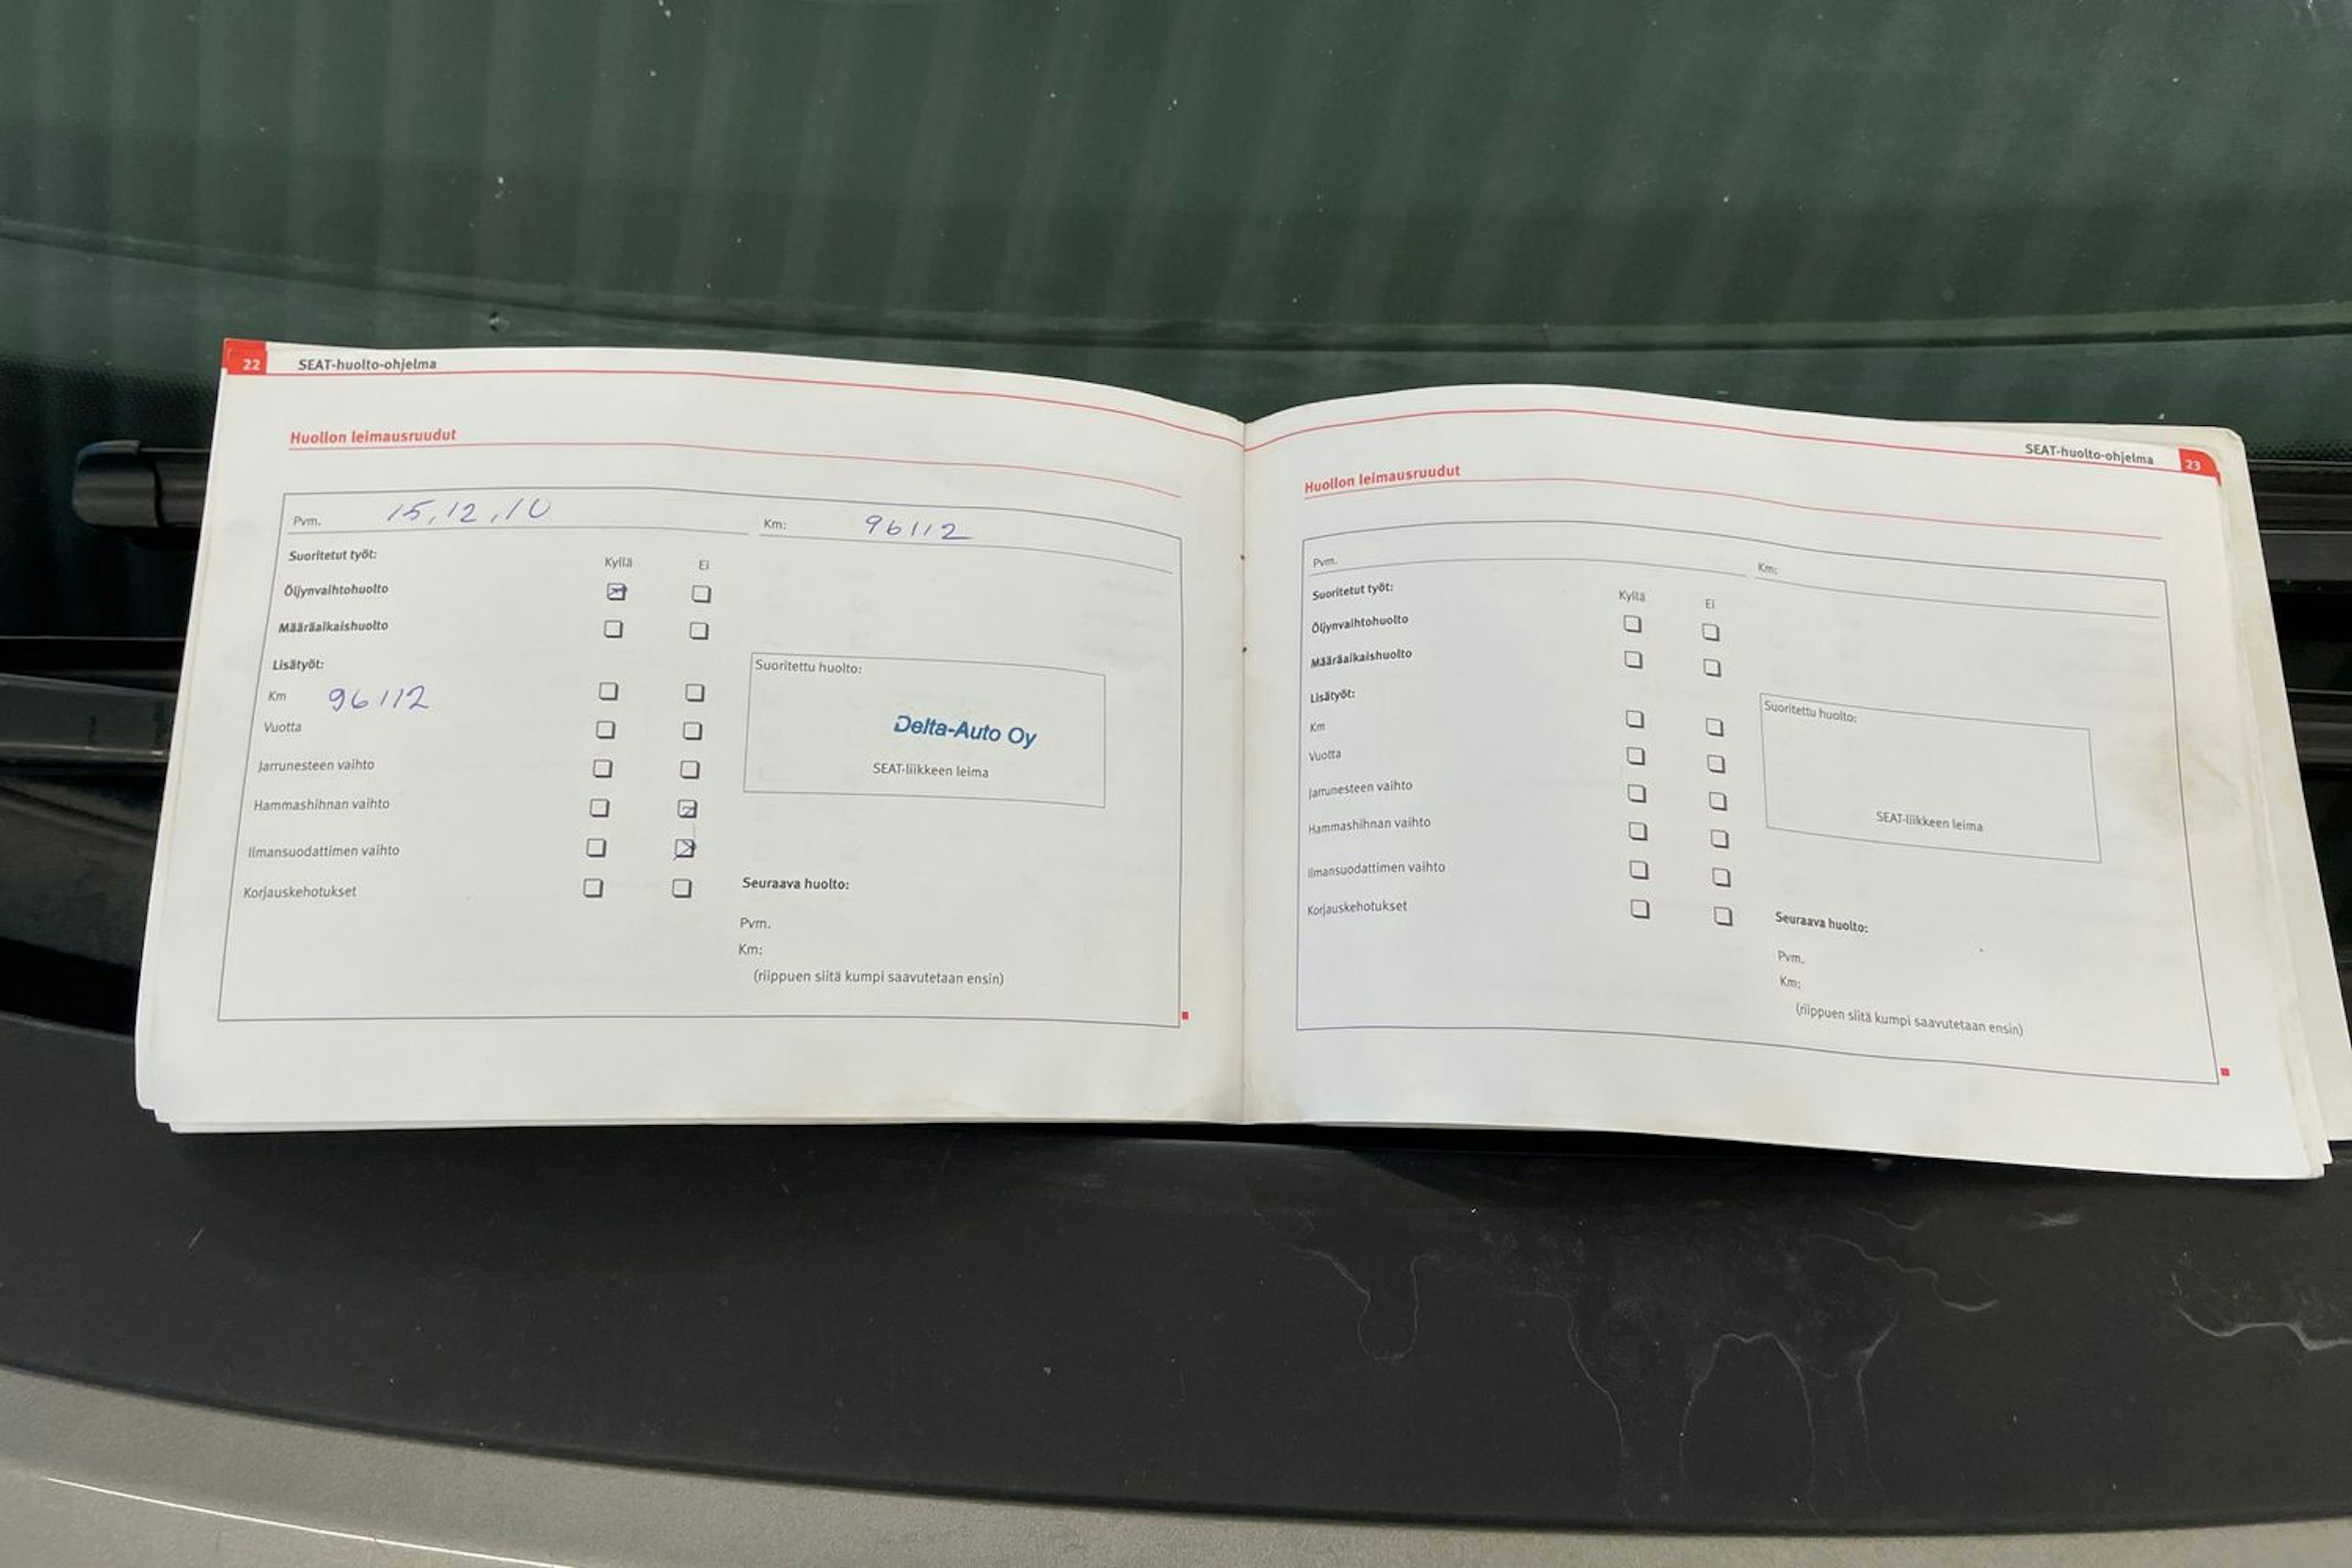 22 SEAT-huolto-ohjelma
Huollon leimausruudut
Pvm. 15,12,10 Km: 96112
Suoritetut työt: Kyllä Ei
Öljynvaihtohuolto
Määräaikaishuolto
Lisätyöt:
Km 96112
Vuotta
Jarrunesteen vaihto
Hammashihnan vaihto
Ilmansuodattimen vaihto
Korjauskehotukset
Suoritettu huolto:
Delta-Auto Oy
SEAT-liikkeen leima
Seuraava huolto:
Pvm.
Km:
(riippuen siitä kumpi saavutetaan ensin)
SEAT-huolto-ohjelma 23
Huollon leimausruudut
Pvm. Km:
Suoritetut työt: Kyllä Ei
Öljynvaihtohuolto
Määräaikaishuolto
Lisätyöt:
Km
Vuotta
Jarrunesteen vaihto
Hammashihnan vaihto
Ilmansuodattimen vaihto
Korjauskehotukset
Suoritettu huolto:
SEAT-liikkeen leima
Seuraava huolto:
Pvm.
Km:
(riippuen siitä kumpi saavutetaan ensin)